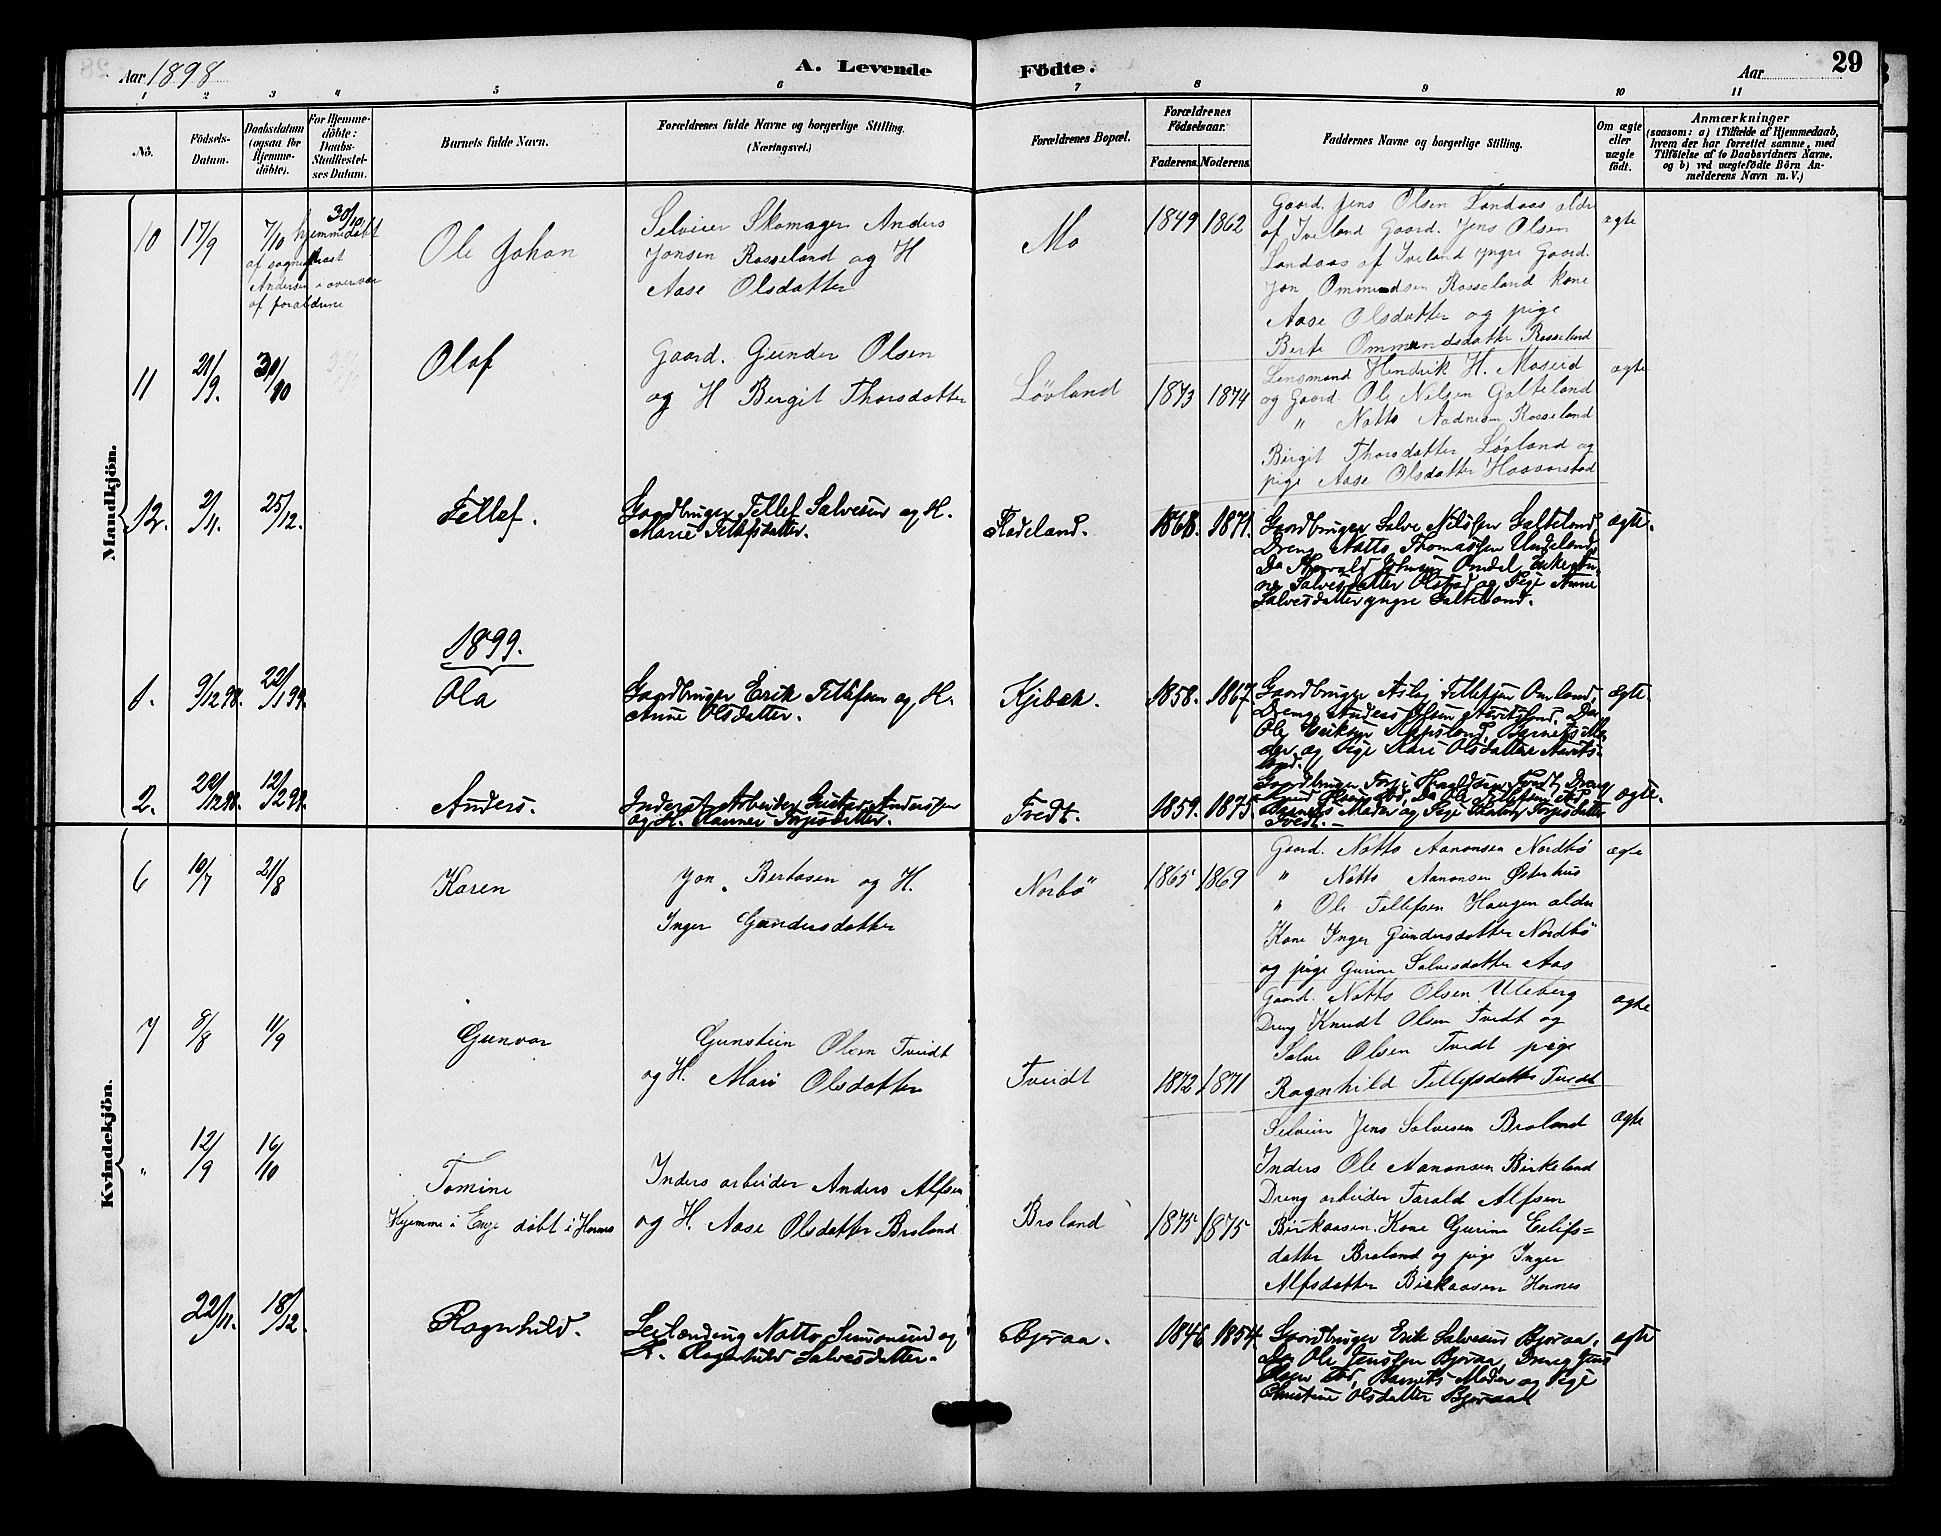 Aar 1898
A. Levende
Födte.
Aar
29
1 2 3 4 5 6 7 8 9 10 11
No.
Födsels-
Datum.
Daabsdatum
(ogsaa for
Hjemme-
döbte).
For Hjemme-
döbte:
Daabs-
Stadfæstel-
ses Datum.
Barnets fulde Navn.
Forældrenes fulde Navne og borgerlige Stilling.
(Næringsvei.)
Forældrenes Bopæl.
Forældrenes
Födselsaar.
Faderens. Moderens.
Faddernes Navne og borgerlige Stilling.
Om ægte
eller
uægte
födt.
Anmærkninger
(saasom: a) i Tilfælde af Hjemmedaab,
hvem der har forrettet samme, med
Tilföielse af to Daabsvidners Navne,
og b) ved uægtefödte Börn An-
melderens Navn m. V.)
Mandkjön.
10
17/9
7/10 hjemmedøbt
af sogneprest
Andersen i overvær
af forældrene
30/10
Ole Johan
Selveier Skomager Anders
Jonsen Rosseland og H
Aase Olsdatter
Mo
1849 1862
Gaard. Jens Olsen Landaas aldre
af Iveland Gaard. Jens Olsen
Landaas af Iveland yngre Gaard.
Jon Ommundsen Rosseland kone
Aase Olsdatter og pige
Berte Ommundsdatter Rosseland
ægte
11
21/9.
30/10
Olaf
Gaard. Gunder Olsen
og H Bergit Thorsdatter
Løvland
1873 1874
Lensmand Hendrik H. Moseid
og Gaard Ole Nilsen Galteland
" Notto Aadnesen Rosseland
Birgit Thorsdatter Løvland og
pige Aase Olsdatter Haavorstad
ægte
12.
2/11.
25/12.
Tellef.
Gaardbruger Tellef Salvesen og H.
Marie Tellefsdatter.
Fladeland.
1868. 1871.
Gaardbruger Salve Nilssen Galteland,
Dreng Notto Thomassen Undeland,
Salvesdatter og Pige Anne
Salvesdatter yngre Galteland.
ægte.
1899.
1.
9/12 98.
22/1 99.
Ola
Gaardbruger Erik Tellefsen og H.
Anne Olsdatter.
Kjebæk.
1858. 1867.
Gaardbruger Aslag Tellefsen Omland,
Dreng Anders Olsen
Ole Eriksen Barnets Mo-
der og Pige Kari Olsdatter
land.
ægte
2.
20/12 98.
12/2 99.
Anders.
Inderst Arbeider Gustav Anderssen
og H. Torjusdatter.
Tvedt.
1859. 1875.
Gaardbruger Tvedt, Dreng
Barnets Moder og Pige Torjusdatter
Tvedt.
ægte.
Kvindekjön.
6
10/7
21/8
Karen
Jon Bertasen og H.
Inger Gundersdatter
Norbö
1865 1869
Gaard. Notto Aanonsen Nordbö
" Notto Aanonsen Østerhus
" Ole Tellefsen Haugen aldre
Kone Inger Gundersdatter Nordbö
og pige Gurine Salvesdatter Aas
ægte
7
8/8
11/9
Gunvor
Gunstein Olsen Tveidt
og H. Mari Olsdatter
Tveidt
1872 1871
Gaard. Notto Olsen Uleberg
Dreng Knudt Olsen Tveidt og
Salve Olsen Tveidt pige
Ragnhild Tellefsdatter Tveidt
ægte
"
12/9
16/10
Tomine
Hjemme i Enge døbt i Hornes
Inders arbeider Anders Alfsen
og H. Aase Olsdatter Broland
Broland
1875 1875
Selveier Jens Salvesen Broland
Inders Ole Aanonsen Birkeland
Dreng arbeider Tarald Alfsen
Birkaasen. Kone Gurine Eilifs=
datter Broland og pige Inger
Alfsdatter Birkaasen Hornes
ægte
22/11.
18/12.
Ragnhild.
Leilænding Notto Simonsen og
H. Ragnhild Salvesdatter.
Bjoraa.
1846 1854.
Gaardbruger Erik Salvesen Bjoraa,
Do Ole Jenssen Bjoraa, Dreng Jens
Olsen Barnets Moder og Pige
Christine Olsdatter Bjoraa.
ægte